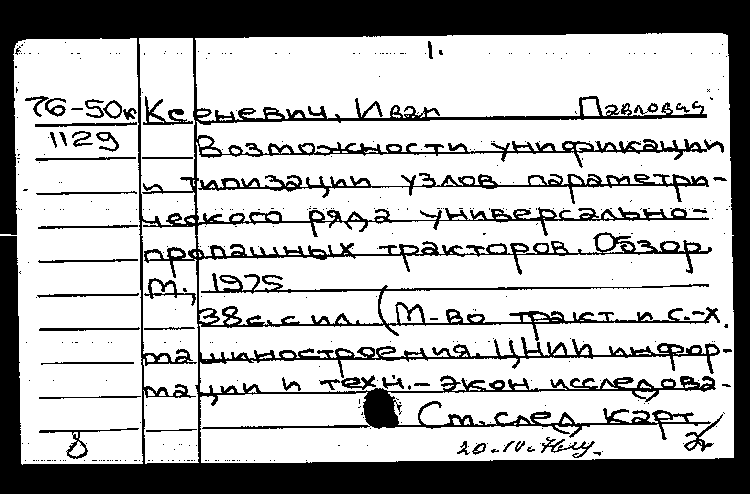 1.
76-50к Ксеневич, Иван Павлович
1129 Возможности унификации
и типизации узлов параметри-
ческого ряда универсально-
пропашных тракторов. Обзор.
М., 1975.
38 с. с ил. (М-во тракт. и с.-х.
машиностроения. ЦНИИ инфор-
мации и техн.-экон. исследова-
См. след. карт.
20.IV.76